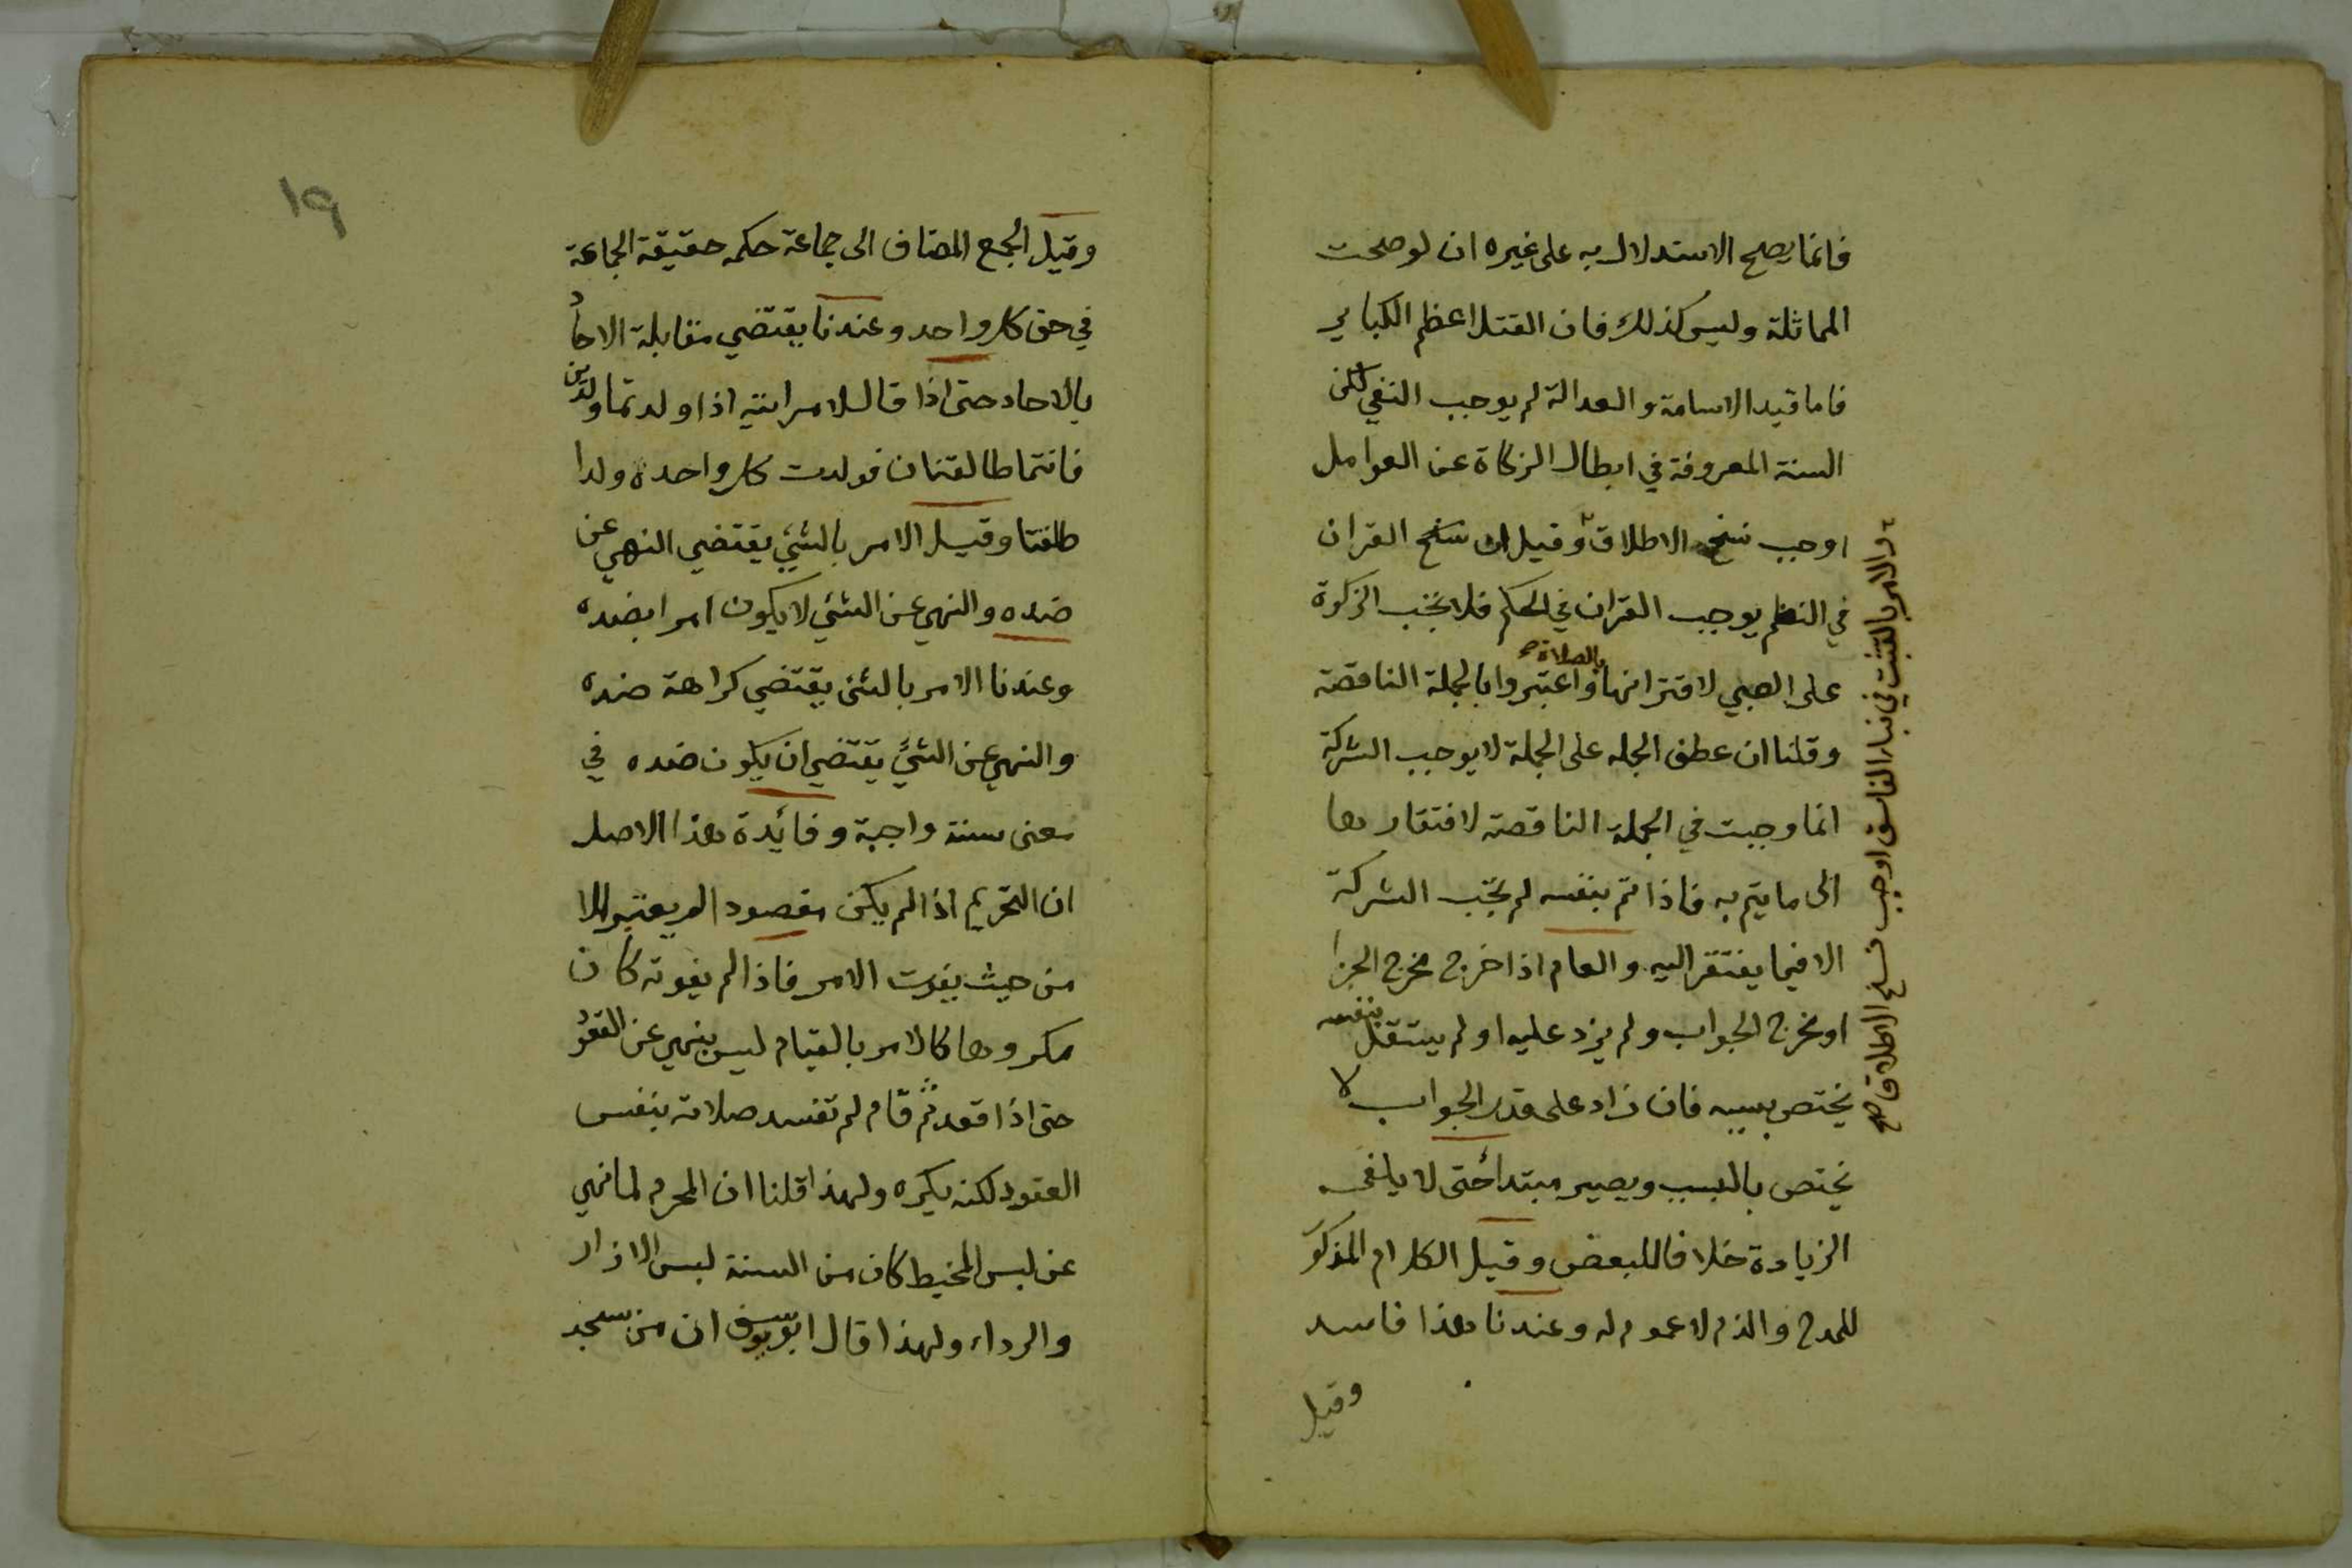 فانما يصح الاستدلال به على غيره ان لو صحت
المماثلة وليس كذلك فان القتل اعظم الكباير
فاما قيد الاسامة والعدالة لم يوجب النفي لكن
السنة المعروفة في ابطال الزكاة عن العوامل
اوجب نسخ الاطلاق وقيل ان القران
في النظم يوجب القران في الحكم فلا تجب الزكوة
على الصبي لاقترانها بالصلاة واعتبروا بالجملة الناقصة
وقلنا ان عطف الجمله على الجملة لا يوجب الشركة
انما وجبت في الجملة الناقصة لافتقارها
الى ما يتم به فاذا تم بنفسه لم تجب الشركة
الا فيما يفتقر اليه والعام اذا خرج مخرج الجزا
او مخرج الجواب ولم يزد عليه او لم يستقل بنفسه
يختص بسببه فان زاد على قدر الجواب لا
يختص بالسبب ويصير مبتدأ حتى لا يلغى
الزيادة خلافا للبعض وقيل الكلام المذكور
للمدح والذم لا عموم له وعندنا هذا فاسد
وقيل
والامر بالتثبت في نبا الفاسق اوجب نسخ الاطلاق صح
١٩
وقيل الجمع المضاف الى جماعة حكمه حقيقة الجماعة
في حق كل واحد وعندنا يقتضي مقابلة الاحاد
بالاحاد حتى اذا قال لامراتيه اذا ولدتما ولدين
فانتما طالقتان فولدت كل واحدة ولدا
طلقتا وقيل الامر بالشيئ يقتضي النهي عن
ضده والنهي عن الشئي لا يكون امرا بضده
وعندنا الامر بالشئ يقتضي كراهة ضده
والنهي عن الشئ يقتضي ان يكون ضده في
معنى سنة واجبة وفائدة هذا الاصل
ان التحريم اذا لم يكن مقصودا لم يعتبر الا
من حيث يفوت الامر فاذا لم يفوته كان
مكروها كالامر بالقيام ليس بنهي عن القعود
حتى اذا قعد ثم قام لم تفسد صلاته بنفس
العقود لكنه يكره ولهذا قلنا ان المحرم لما نهي
عن لبس المخيط كان من السنة لبس الازار
والرداء ولهذا قال ابو يوسف ان من سجد